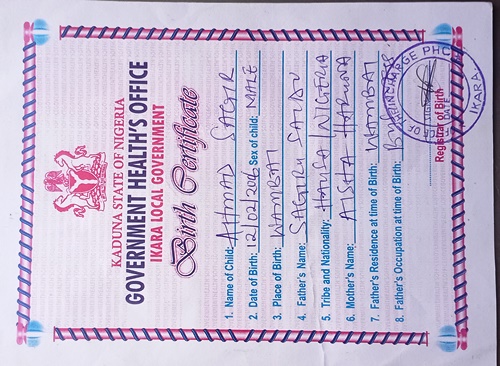 KADUNA STATE OF NIGERIA
GOVERNMENT HEALTH'S OFFICE
IKARA LOCAL GOVERNMENT
Birth Certificate
1. Name of Child: AHMAD SAGIR
2. Date of Birth: 12/02/2006 Sex of child: MALE
3. Place of Birth: WAMBAI
4. Father's Name: SAGIRU SALAU
5. Tribe and Nationality: HAUSA/NIGERIA
6. Mother's Name: AISHA HARUNA
7. Father's Residence at time of Birth: WAMBAI
8. Father's Occupation at time of Birth:
INCHARGE PHC
IKARA
Registrar of Birth